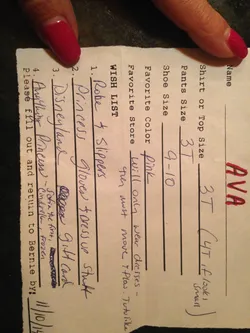 Name AVA
Shirt or Top Size 3T (4T if looks small)
Pants Size 3T
Shoe Size 9-10
Favorite Color pink
Favorite Store will only wear dresses -
they must move + flow Tutu like
WISH LIST
1. Robe & slippers
2. Princess gloves + dress up stuff
3. Disneyland gift card
4. Another Princess
Please fill out and return to Bernie by: 11/10/